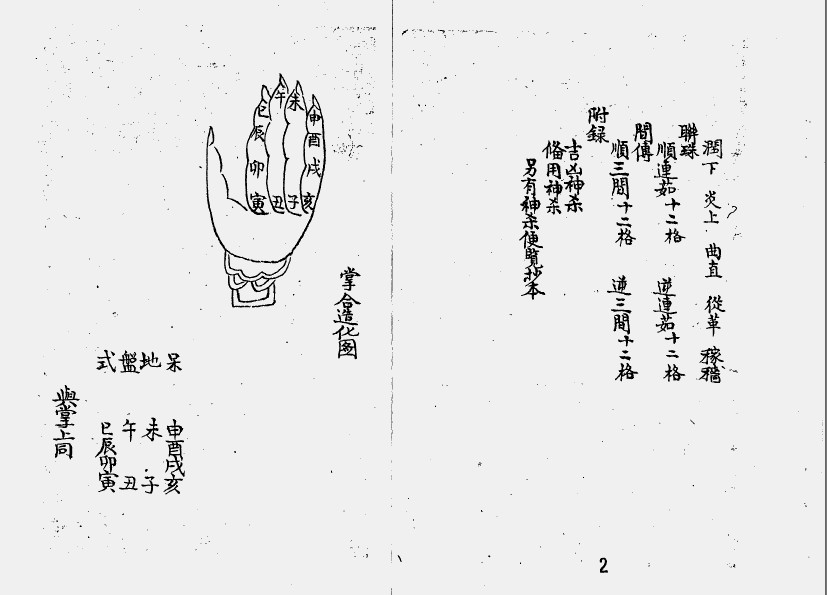 潤下 炎上 曲直 從革 稼穡
聯珠
順連茹十二格 逆連茹十二格
間傳
順三間十二格 逆三間十二格
附録
吉凶神杀
俻用神杀
另有神杀便覧抄本
2
掌合造化图
巳 午 未 申
辰 酉
卯 戌
寅 丑 子 亥
呆地盤式
申酉戌亥
未 子
午 丑
巳辰卯寅
與掌上同